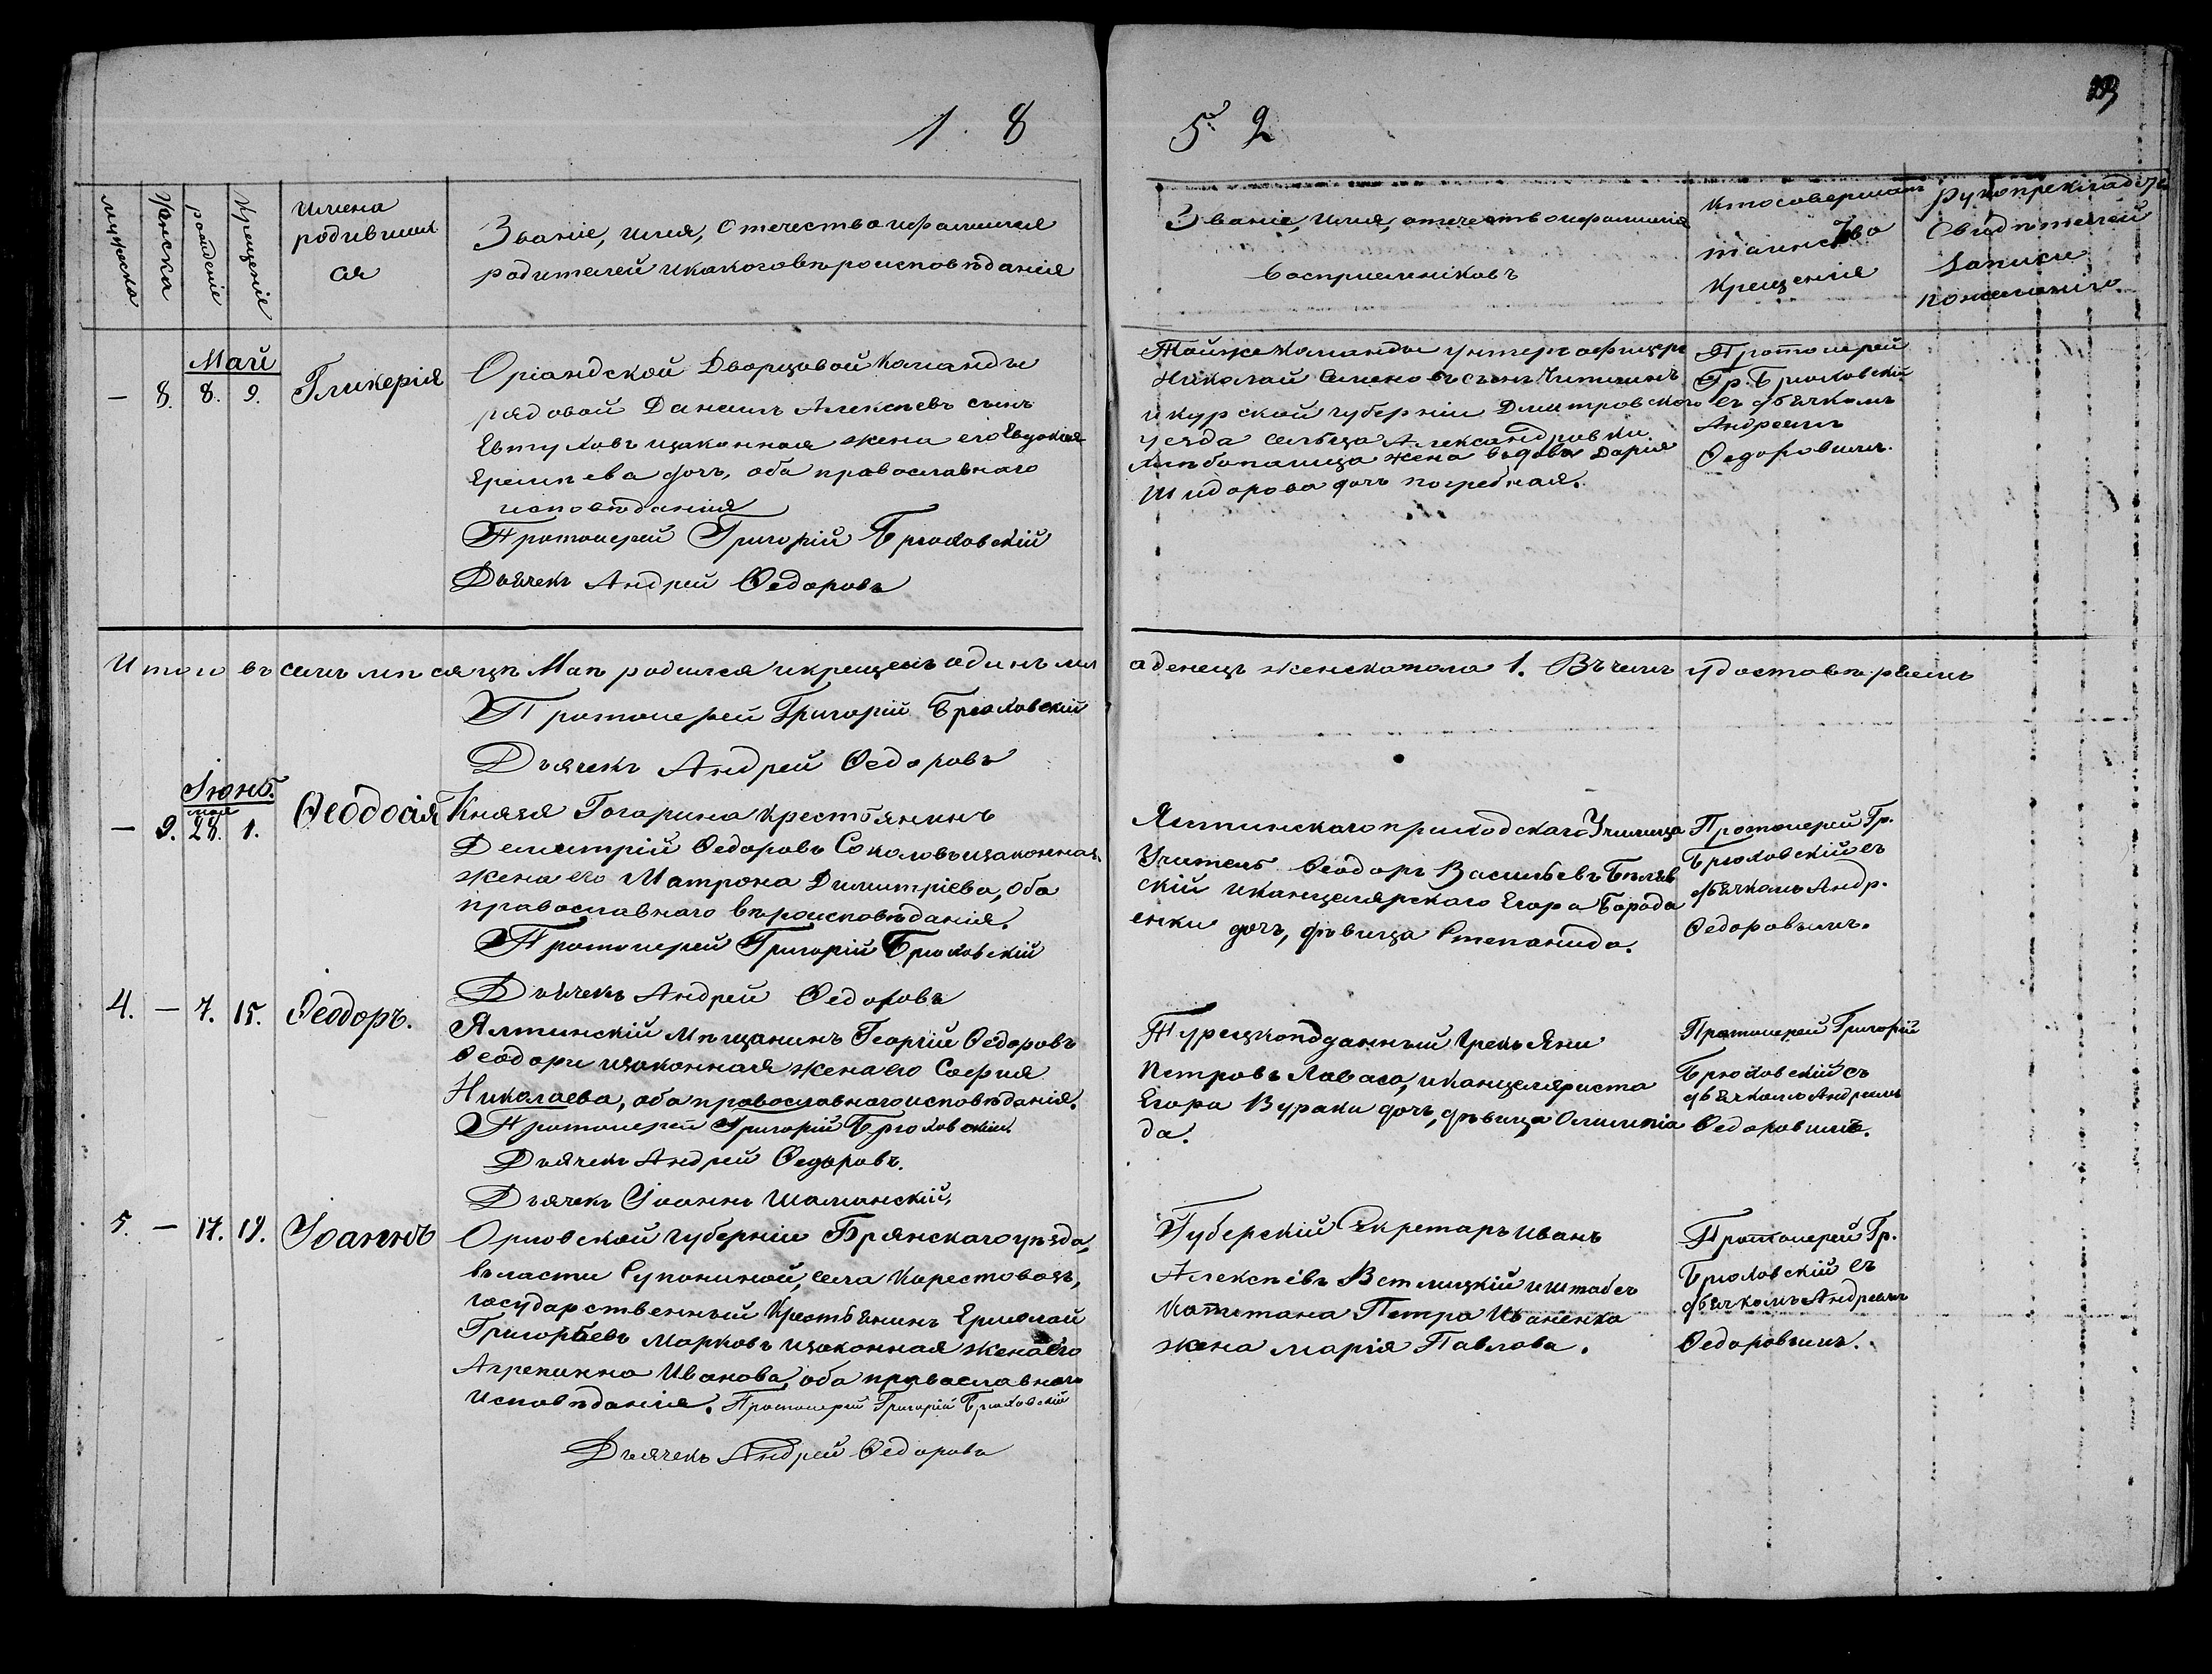 1 8 5 2
мужеска
Женска
рожденіе
Крещеніе
имена
родивших
ся
Званіе, имя, отечество и фамилия
родителей и какого вѣроисповѣданія
Званіе, имя, отечество и фамилия
воспріемниковъ
кто совершалъ
таинство
Крещенія
Свидѣтелей
записи
по желанію
Май
— 8. 8. 9. Гликерія
Оріандской Дворцовой Команды
рядовой Данаилъ Алексѣевъ сынъ
Евтуховъ и законная жена его Евдокия
Еремѣева дочь, оба православнаго
исповѣданія
Протоиерей Григорій Брюховскій
Дьячекъ Андрей Ѳедоровъ
Той же Команды унтеръ офицеръ
Николай Семеновъ сынъ
и курской губерніи Дмитровского
уезда сельца Александровки
хлѣбопашца жена вдова Дария
дочь погребная.
Протоиерей
Гр. Брюховскій
съ дьячкомъ
Андреемъ
Ѳедоровымъ.
Итого въ семъ мѣсяцѣ Маѣ родился и крещенъ одинъ мл
аденецъ женска пола 1. Въ чемъ удостовѣряемъ
Протоиерей Григорій Брюховскій
Дьячекъ Андрей Ѳедоровъ
Іюнь.
мая
— 9. 28. 1. Ѳеодосія
Князя Гагарина крестьянинъ
Демитрій Ѳедоровъ Соколовъ и законная
жена его Матрона Димитріева, оба
православнаго вѣроисповѣданія.
Протоиерей Григорій Брюховскій
Дьячекъ Андрей Ѳедоровъ
Ялтинскаго приходскаго Училища
Учитель Ѳеодоръ Васильевъ Бѣляв
скій и канцелярскаго Егора Борода
енки дочь, дѣвица Степанида.
Протоиерей Гр.
Брюховскій съ
дьячкомъ Андр.
Ѳедоровымъ.
4. — 7. 15. Ѳеодоръ.
Ялтинскій Мѣщанинъ Георгій Ѳедоровъ
Ѳеодори и законная жена его София
Николаева, оба православнаго исповѣданія.
Протоиерей Григорій Брюховскій.
Дьячекъ Андрей Ѳедоровъ.
Дьячекъ Іоаннъ Шаманскій,
Турецкоподданный Грекъ Яни
Петровъ Лаваса, и канцеляриста
Егора Вураки дочь, дѣвица Олимпіа
да.
Протоиерей Григорій
Брюховскій съ
дьячкомъ Андреемъ
Ѳедоровымъ.
5. — 17. 19. Іоаннъ
Орловской губерніи Брянскаго уѣзда,
въласти Супониной, села
государственный Крестьянинъ Ермолай
Григорьевъ Марковъ и законная жена его
Агрепинна Иванова, оба православнаго
исповѣданія. Протоиерей Григорій Брюховскій
Дьячекъ Андрей Ѳедоровъ
Губерскій Секретарь Иванъ
Алексѣевъ Ветлицкій и штабсъ
Капитана Петра Иваненка
жена Марія Павлова.
Протоиерей Гр.
Брюховскій съ
дьячкомъ Андреемъ
Ѳедоровымъ.